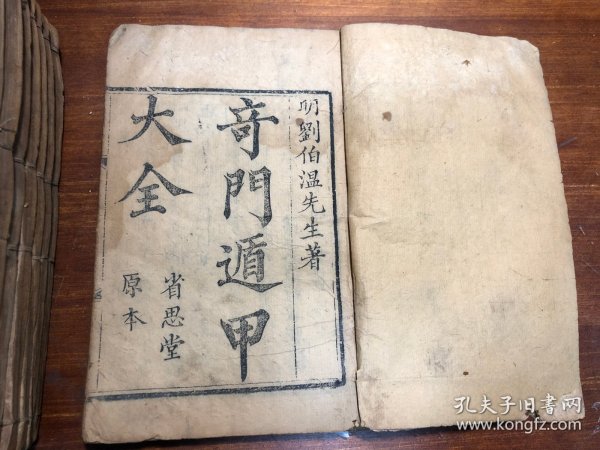 明劉伯温先生著
奇門遁甲
大全
省思堂
原本
孔夫子旧书网
www.kongfz.com